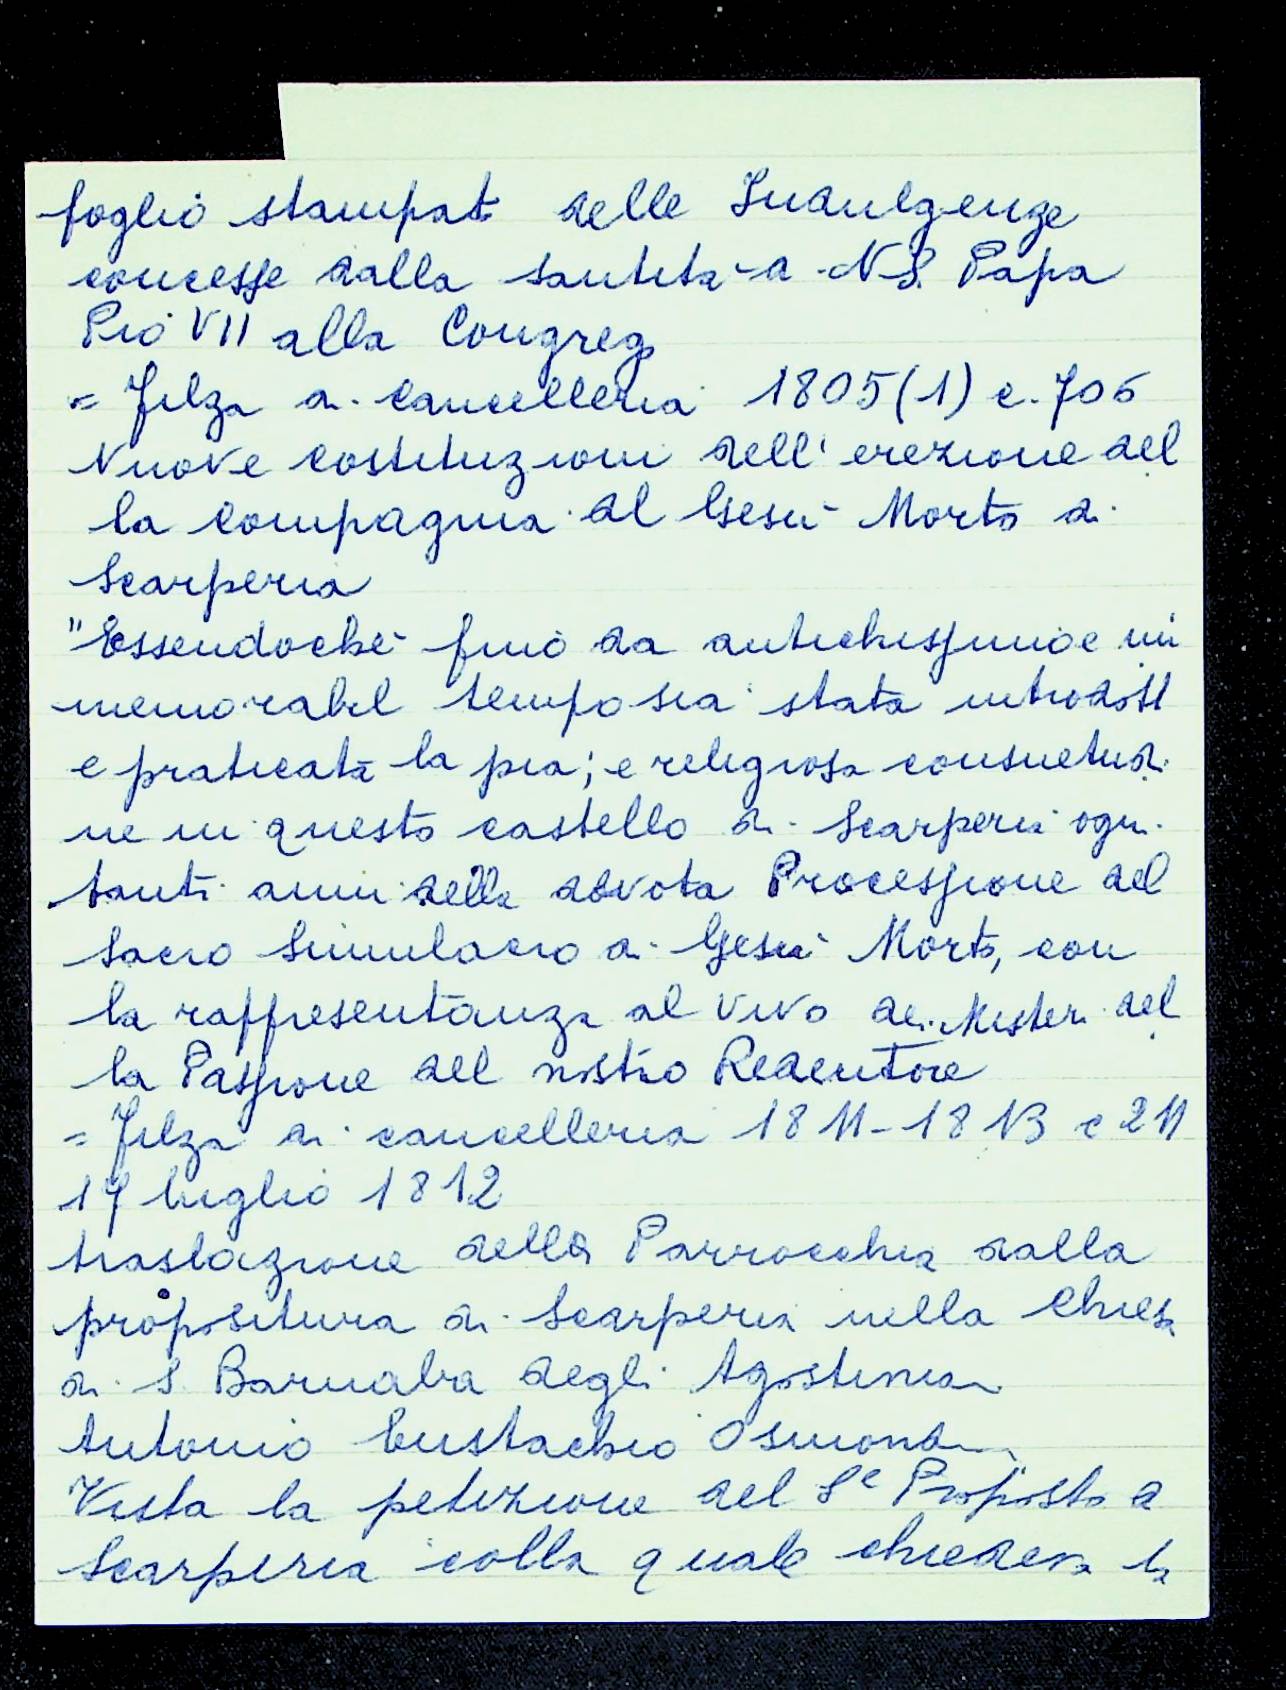 foglio stampat delle Indulgenze
concesse dalla santità d NS. Papa
Pio VII alla Congreg
= Filza di cancelleria 1805(1) c. 706
Nuove costituzioni dell' erezione del
la compagnia al Gesù Morto di
Scarperia
"Essendoché fino da antichissimo e im
memorabil tempo sia stata introdott
e praticata la pia; e religiosa consuetudi
ne in questo castello di Scarperia ogni
tanti anni della devota Processione del
sacro Simulacro di Gesù Morto, con
la rappresentanza al vivo dei Misteri del
la Passione del nostro Redentore
= Filza di cancelleria 1811-1813 c 211
17 luglio 1812
traslazione della Parrocchia dalla
propositura di Scarperia nella Chiesa
di S. Barnaba degli Agostinian
Antonio Eustachio Osmond
Vista la petizione del Sᵉ Proposto d
Scarperia colla quale chiedeva la